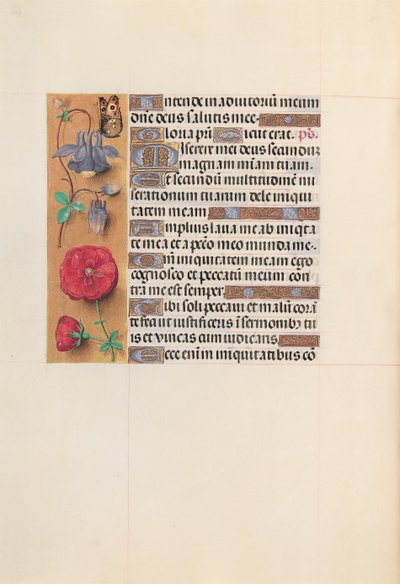 Intende in adiutoriū meum
dn̄e deus salutis mee·
Gloria pr̄i Sicut erat. ps̄.
Miserere mei deus secundum
magnam mīam tuam.
Et secundū multitudinem mi
serationum tuarum dele iniqui
tatem meam
Amplius laua me ab iniqta
te mea et a pec̄o meo munda me·
Qm̄ iniquitatem meam ego
cognosco et peccatū meum con
tra me est semper
Tibi soli peccaui et malū corā
te feci ut iustificeris ī sermonibꝫ tu
is et vincas cum iudicaris
Ecce enim iniquitatibus cō